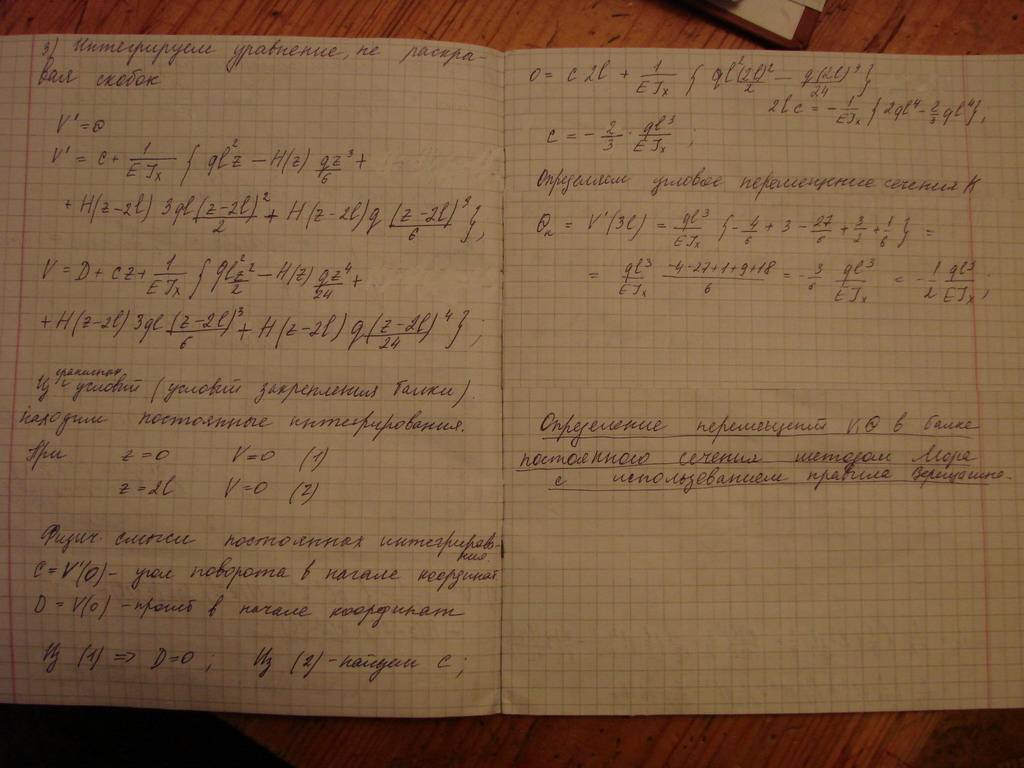 3) Интегрируем уравнение, не раскры-
вая скобок
V' = Θ
V' = C + 1/(EJx) { ql²z − H(z) qz³/6 +
+ H(z−2l) 3ql (z−2l)²/2 + H(z−2l) q (z−2l)³/6 };
V = D + Cz + 1/(EJx) { ql² z²/2 − H(z) qz⁴/24 +
+ H(z−2l) 3ql (z−2l)³/6 + H(z−2l) q (z−2l)⁴/24 };
Из граничных условий (условий закрепления балки)
находим постоянные интегрирования.
При z=0 V=0 (1)
z=2l V=0 (2)
Физич. смысл постоянных интегрирова-
ния.
C = V'(0) – угол поворота в начале координат
D = V(0) – прогиб в начале координат
Из (1) => D=0; Из (2) – найдем C;
0 = C 2l + 1/(EJx) { ql²(2l)²/2 − q(2l)⁴/24 }
2lC = −1/(EJx) { 2ql⁴ − 2/3 ql⁴ };
C = − 2/3 · ql³/(EJx);
Определяем угловое перемещение сечения K
Θк = V'(3l) = ql³/(EJx) { −4/6 + 3 − 27/6 + 3/2 + 1/6 } =
= ql³/(EJx) (−4−27+1+9+18)/6 = −3/6 ql³/(EJx) = −1/2 ql³/(EJx);
Определение перемещений V, Θ в балке
постоянного сечения методом Мора
с использованием правила Верещагина.